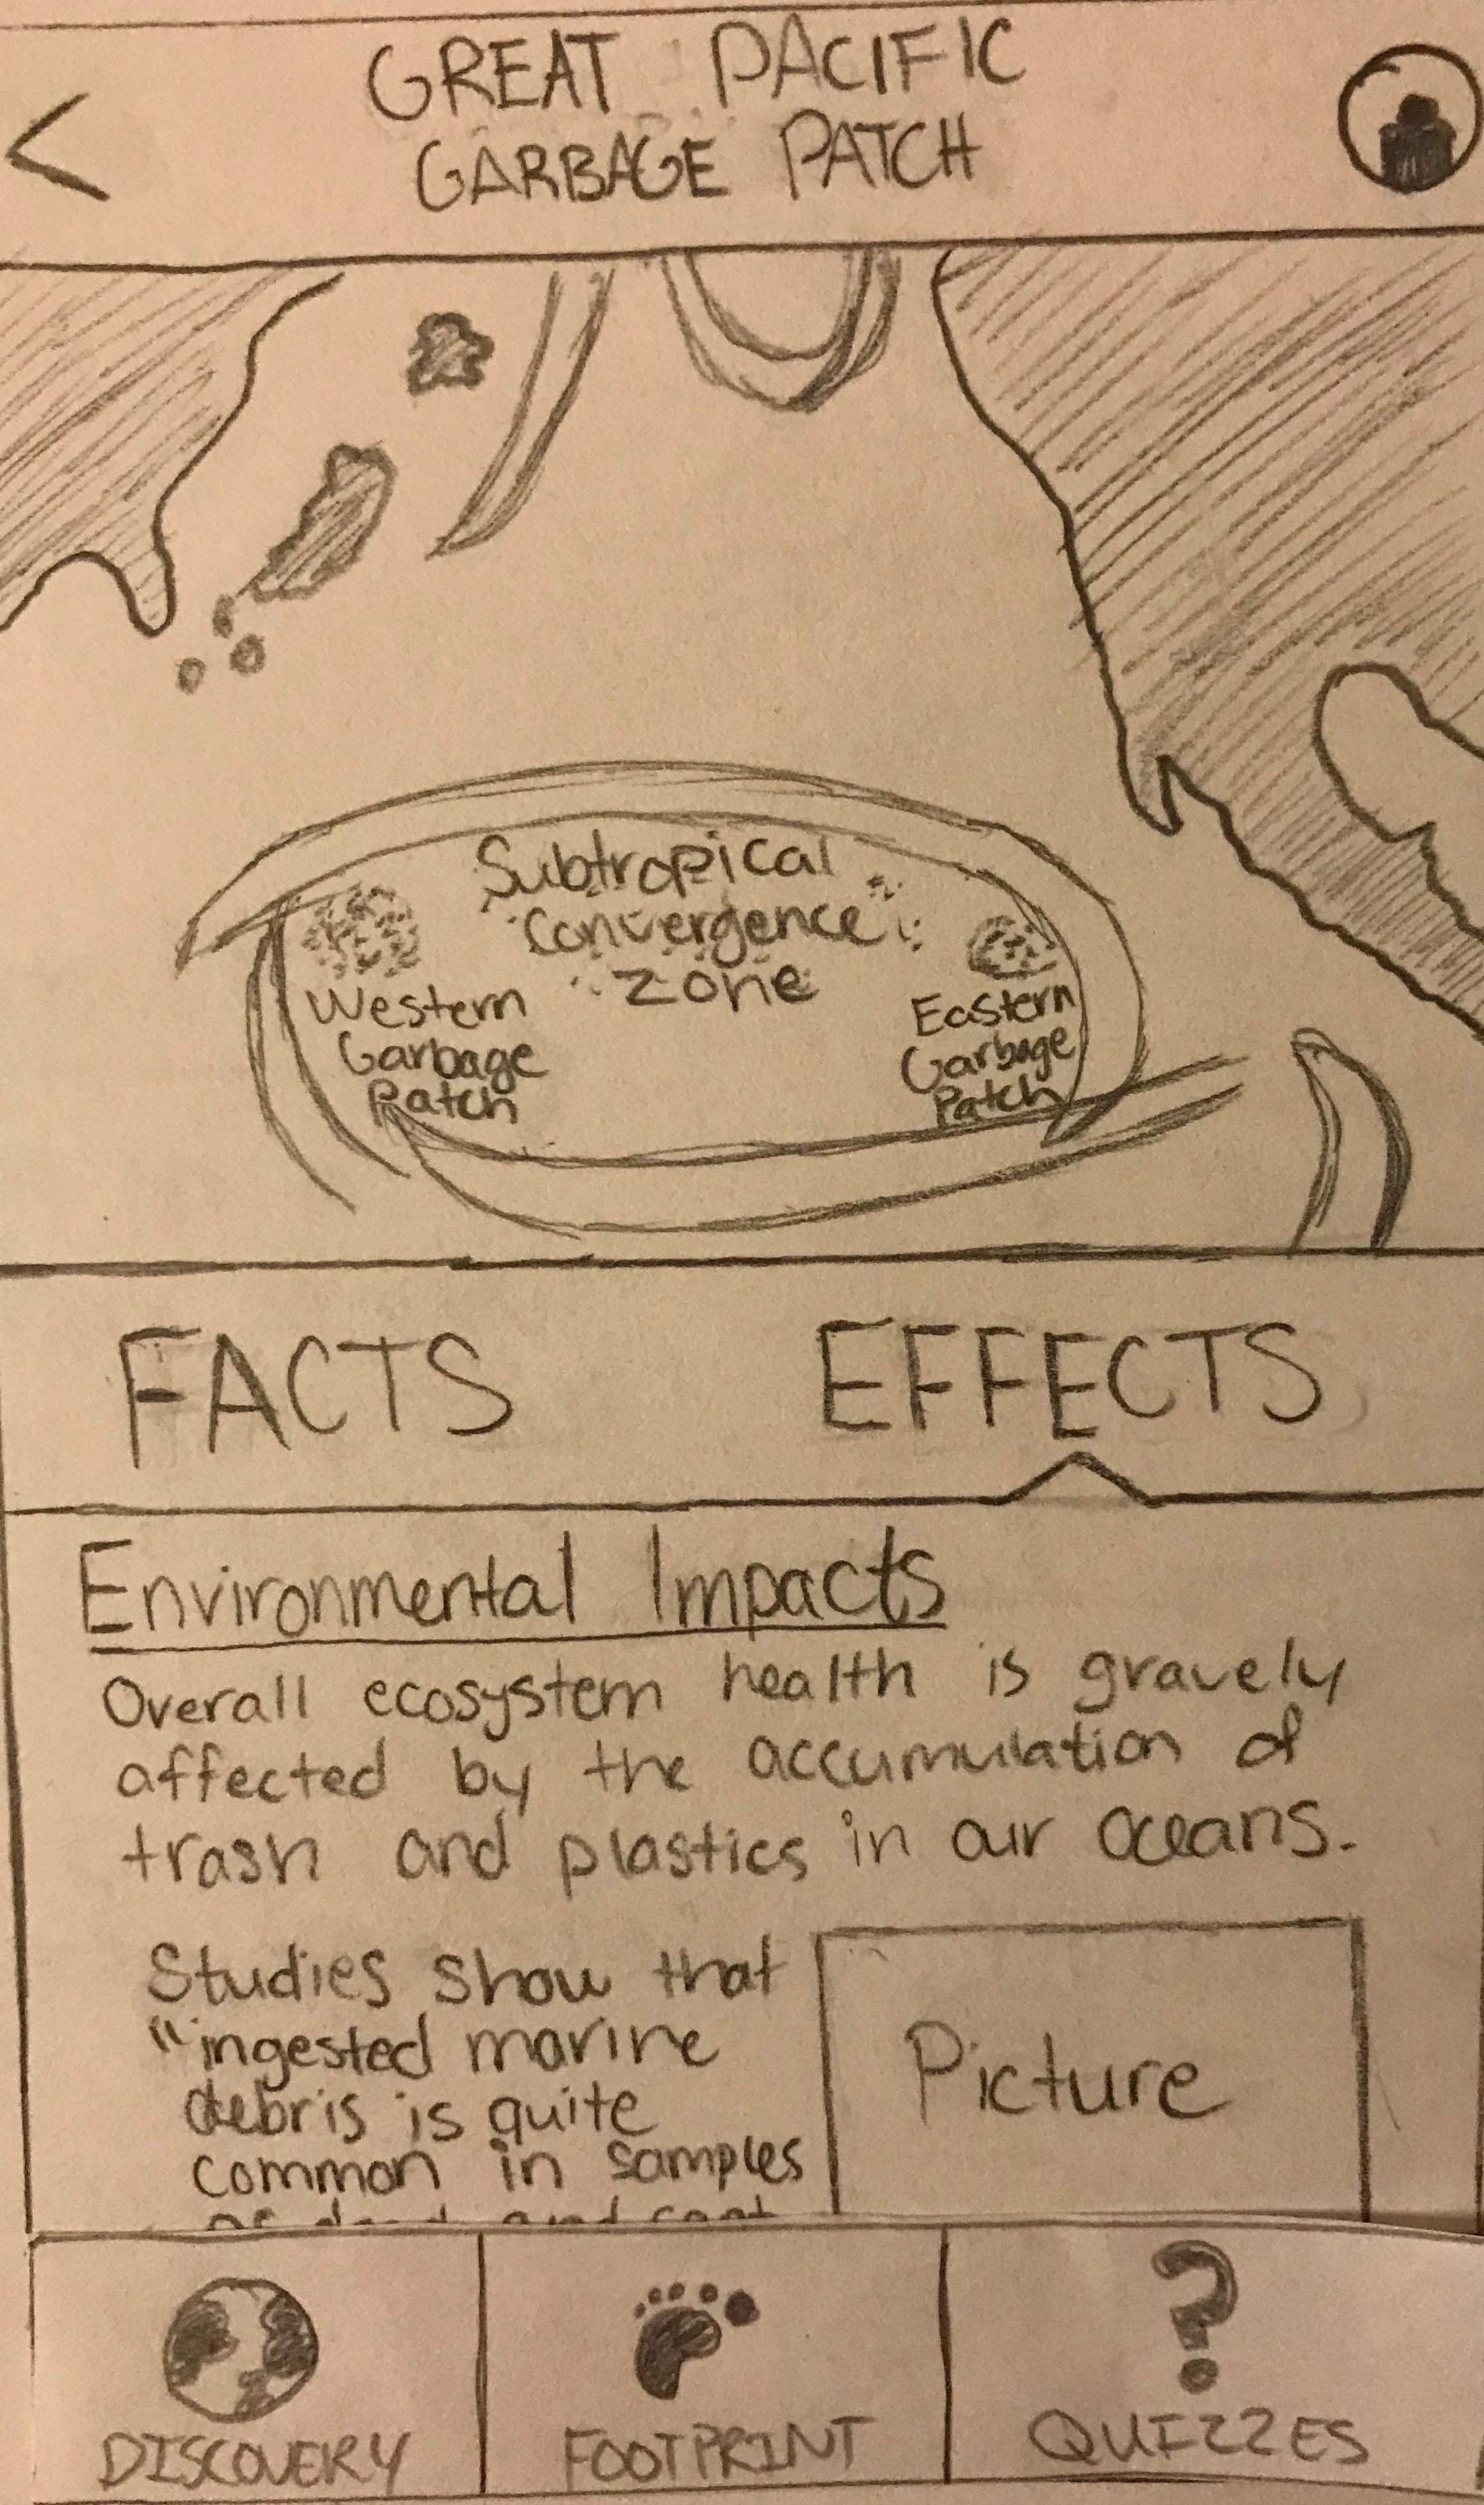 GREAT PACIFIC
GARBAGE PATCH
Subtropical
Convergence
Zone
Western
Garbage
Patch
Eastern
Garbage
Patch
FACTS
EFFECTS
Environmental Impacts
Overall ecosystem health is gravely
affected by the accumulation of
trash and plastics in our oceans.
Studies show that
"ingested marine
debris is quite
common in samples
Picture
DISCOVERY
FOOTPRINT
QUIZZES